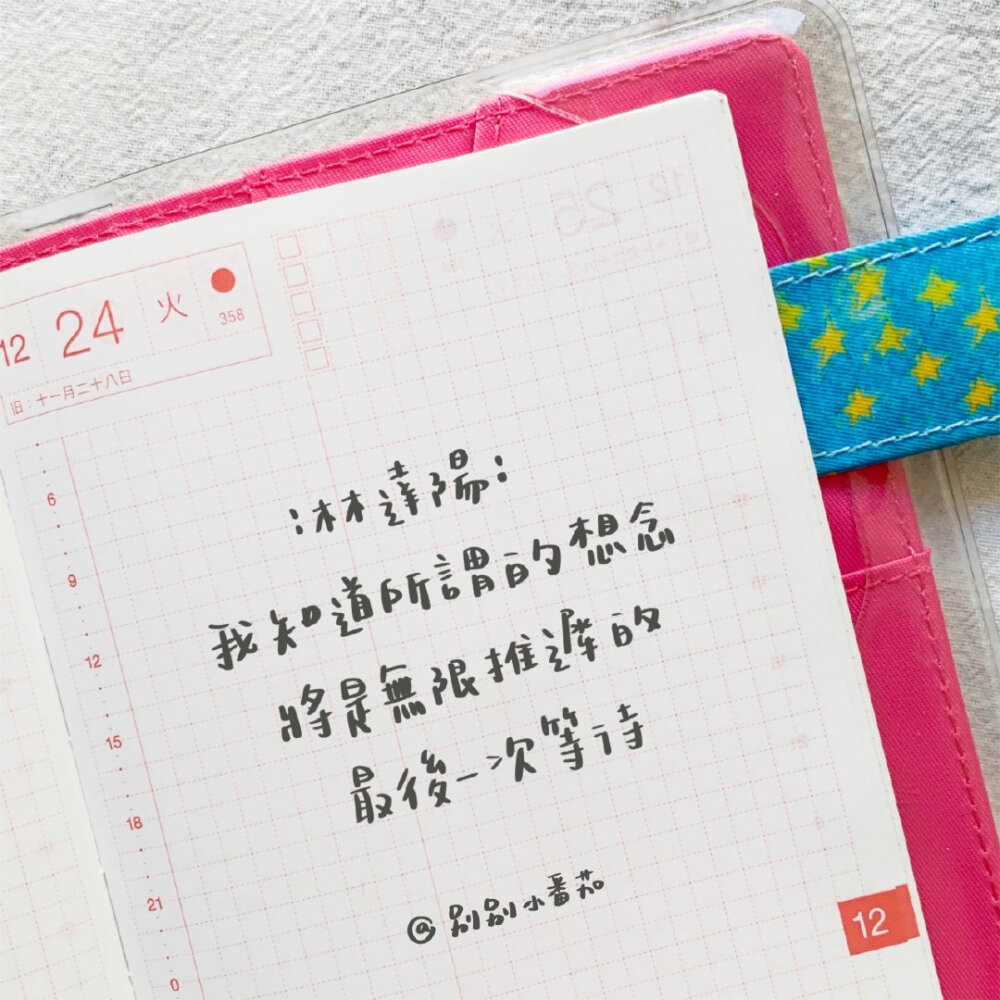 12 24 火
358
旧:十一月二十八日
6
9
12
15
18
21
0
:林達陽:
我知道所謂的想念
將是無限推遲的
最後一次等待
@別別小番茄
12